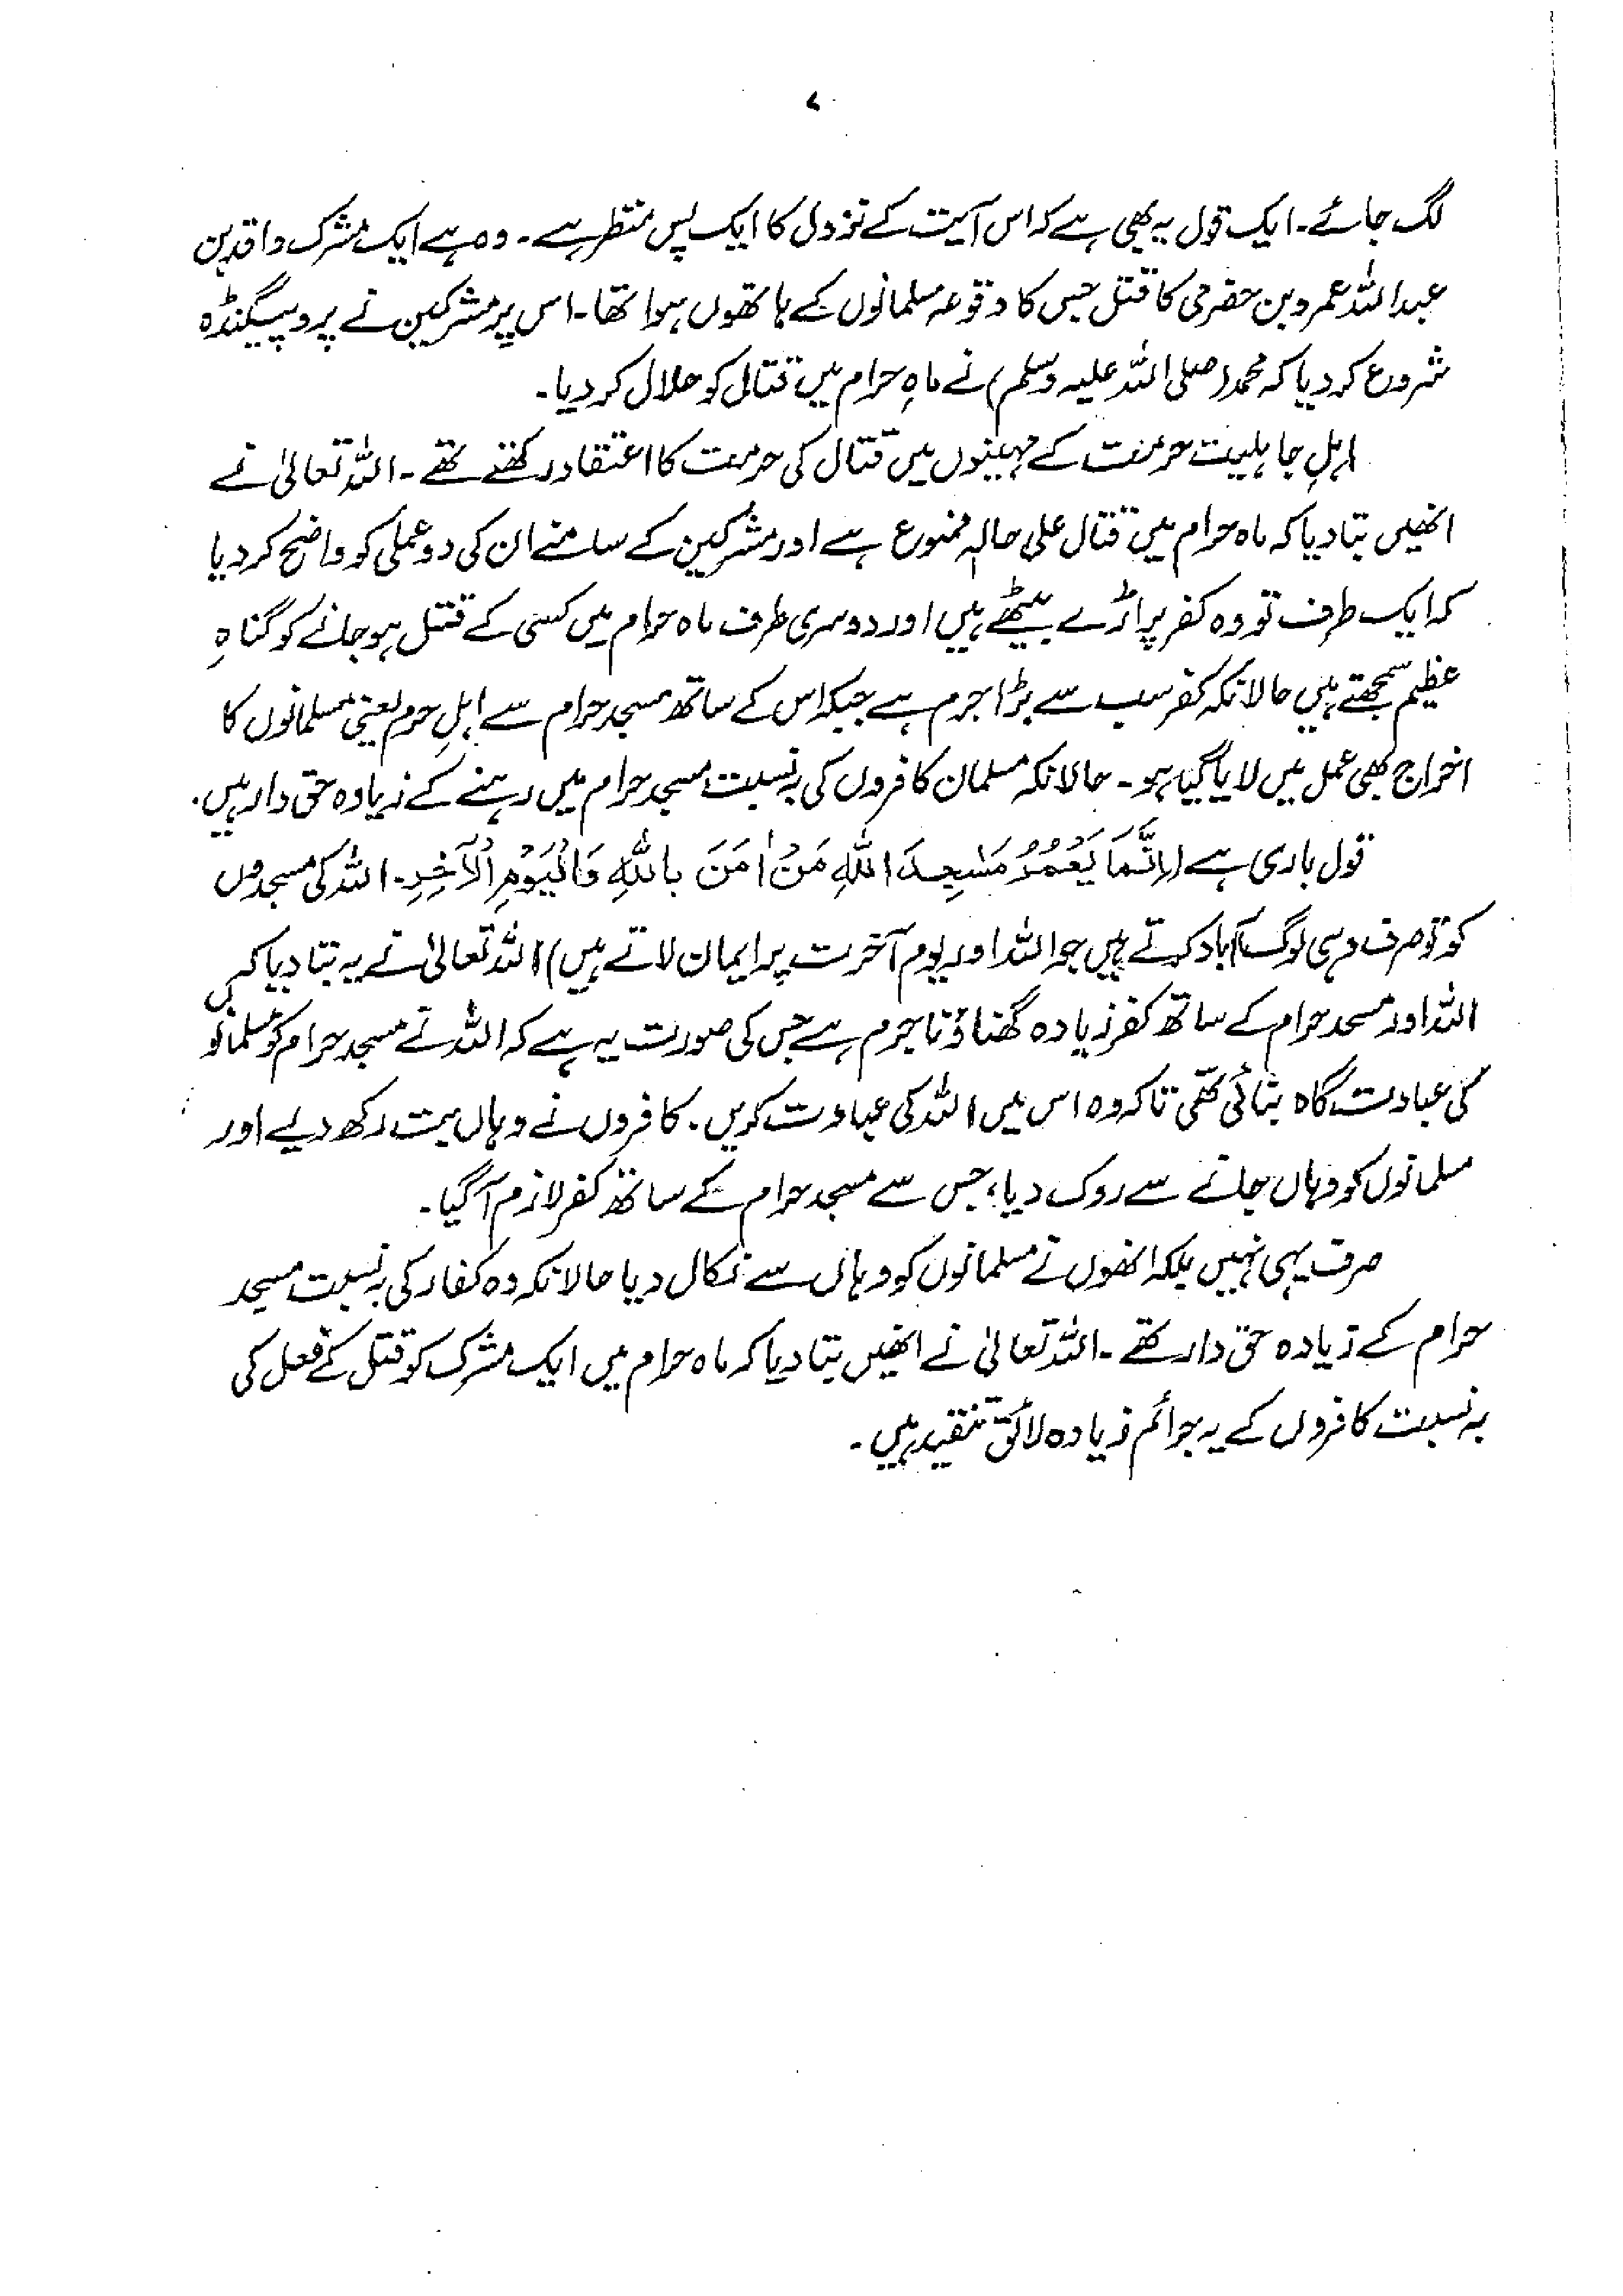 ۷
لگ جائے۔ ایک قول یہ بھی ہے کہ اس آیت کے نزول کا ایک پس منظر ہے۔ وہ ہے ایک مشرک واقد بن
عبداللہ عمرو بن حضرمی کا قتل جس کا وقوعہ مسلمانوں کے ہاتھوں ہوا تھا۔ اس پر مشرکین نے پروپیگنڈہ
شروع کر دیا کہ محمد (صلی اللہ علیہ وسلم) نے ماہِ حرام میں قتال کو حلال کر دیا۔
اہلِ جاہلیت حرمت کے مہینوں میں قتال کی حرمت کا اعتقاد رکھتے تھے۔ اللہ تعالیٰ نے
انھیں بتا دیا کہ ماہ حرام میں قتال علی حالہٖ ممنوع ہے اور مشرکین کے سامنے ان کی دو عملی کو واضح کر دیا
کہ ایک طرف تو وہ کفر پر اڑے بیٹھے ہیں اور دوسری طرف ماہ حرام میں کسی کے قتل ہو جانے کو گناہِ
عظیم سمجھتے ہیں حالانکہ کفر سب سے بڑا جرم ہے جبکہ اس کے ساتھ مسجد حرام سے اہلِ حرم یعنی مسلمانوں کا
اخراج بھی عمل میں لایا گیا ہو۔ حالانکہ مسلمان کافروں کی بہ نسبت مسجد حرام میں رہنے کے زیادہ حق دار ہیں۔
قول باری ہے (اِنَّمَا یَعْمُرُ مَسٰجِدَ اللّٰہِ مَنْ اٰمَنَ بِاللّٰہِ وَالْیَوْمِ الْاٰخِرِ۔ اللہ کی مسجدوں
کو تو صرف وہی لوگ آباد کرتے ہیں جو اللہ اور یوم آخرت پر ایمان لاتے ہیں) اللہ تعالیٰ نے یہ بتا دیا کہ
اللہ اور مسجد حرام کے ساتھ کفر زیادہ گھناؤنا جرم ہے جس کی صورت یہ ہے کہ اللہ نے مسجد حرام کو مسلمانوں
کی عبادت گاہ بنائی تھی تاکہ وہ اس میں اللہ کی عبادت کریں۔ کافروں نے وہاں بت رکھ دیے اور
مسلمانوں کو وہاں جانے سے روک دیا، جس سے مسجد حرام کے ساتھ کفر لازم آگیا۔
صرف یہی نہیں بلکہ انھوں نے مسلمانوں کو وہاں سے نکال دیا حالانکہ وہ کفار کی بہ نسبت مسجد
حرام کے زیادہ حق دار تھے۔ اللہ تعالیٰ نے انھیں بتا دیا کہ ماہ حرام میں ایک مشرک کو قتل کے فعل کی
بہ نسبت کافروں کے یہ جرائم زیادہ لائق تنقید ہیں۔